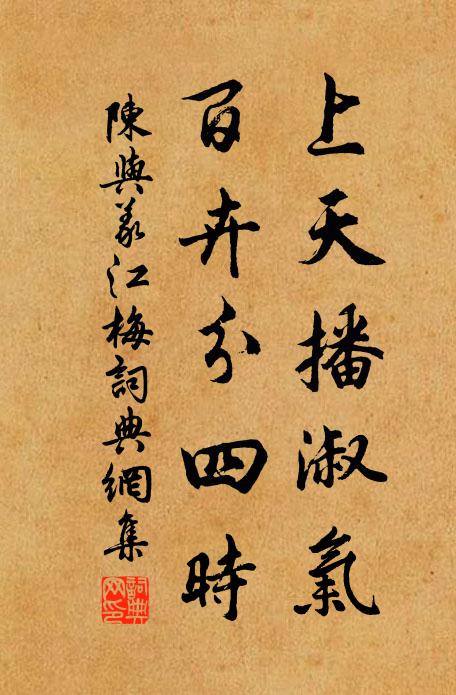 上天播淑氣
百卉分四時
陳與義江梅詞典網集
詞典网印